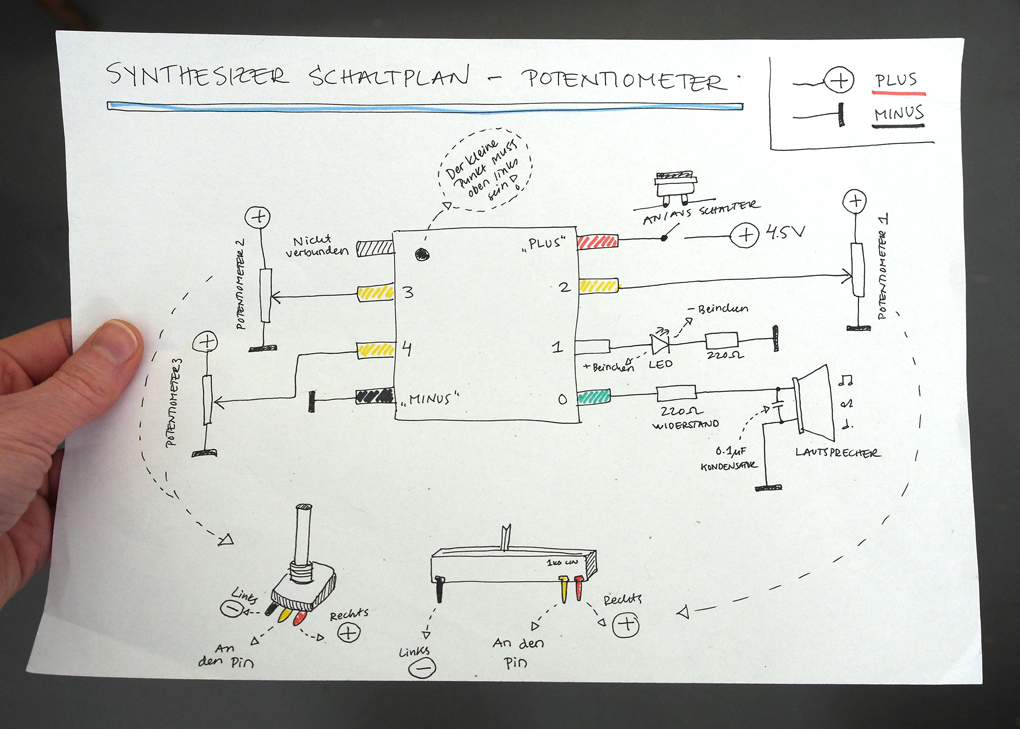 SYNTHESIZER SCHALTPLAN - POTENTIOMETER.
+ PLUS
MINUS
Der kleine
Punkt muss
oben links
sein!
AN/AUS SCHALTER
+ 4.5V
Nicht
verbunden
"PLUS"
3
2
4
1
"MINUS"
0
+
POTENTIOMETER 2
+
POTENTIOMETER 3
+
POTENTIOMETER 1
- Beinchen
+ Beinchen
LED
220Ω
220Ω
WIDERSTAND
0.1µF
KONDENSATOR
LAUTSPRECHER
Links
-
Rechts
+
An
den Pin
Links
-
An den
Pin
Rechts
+